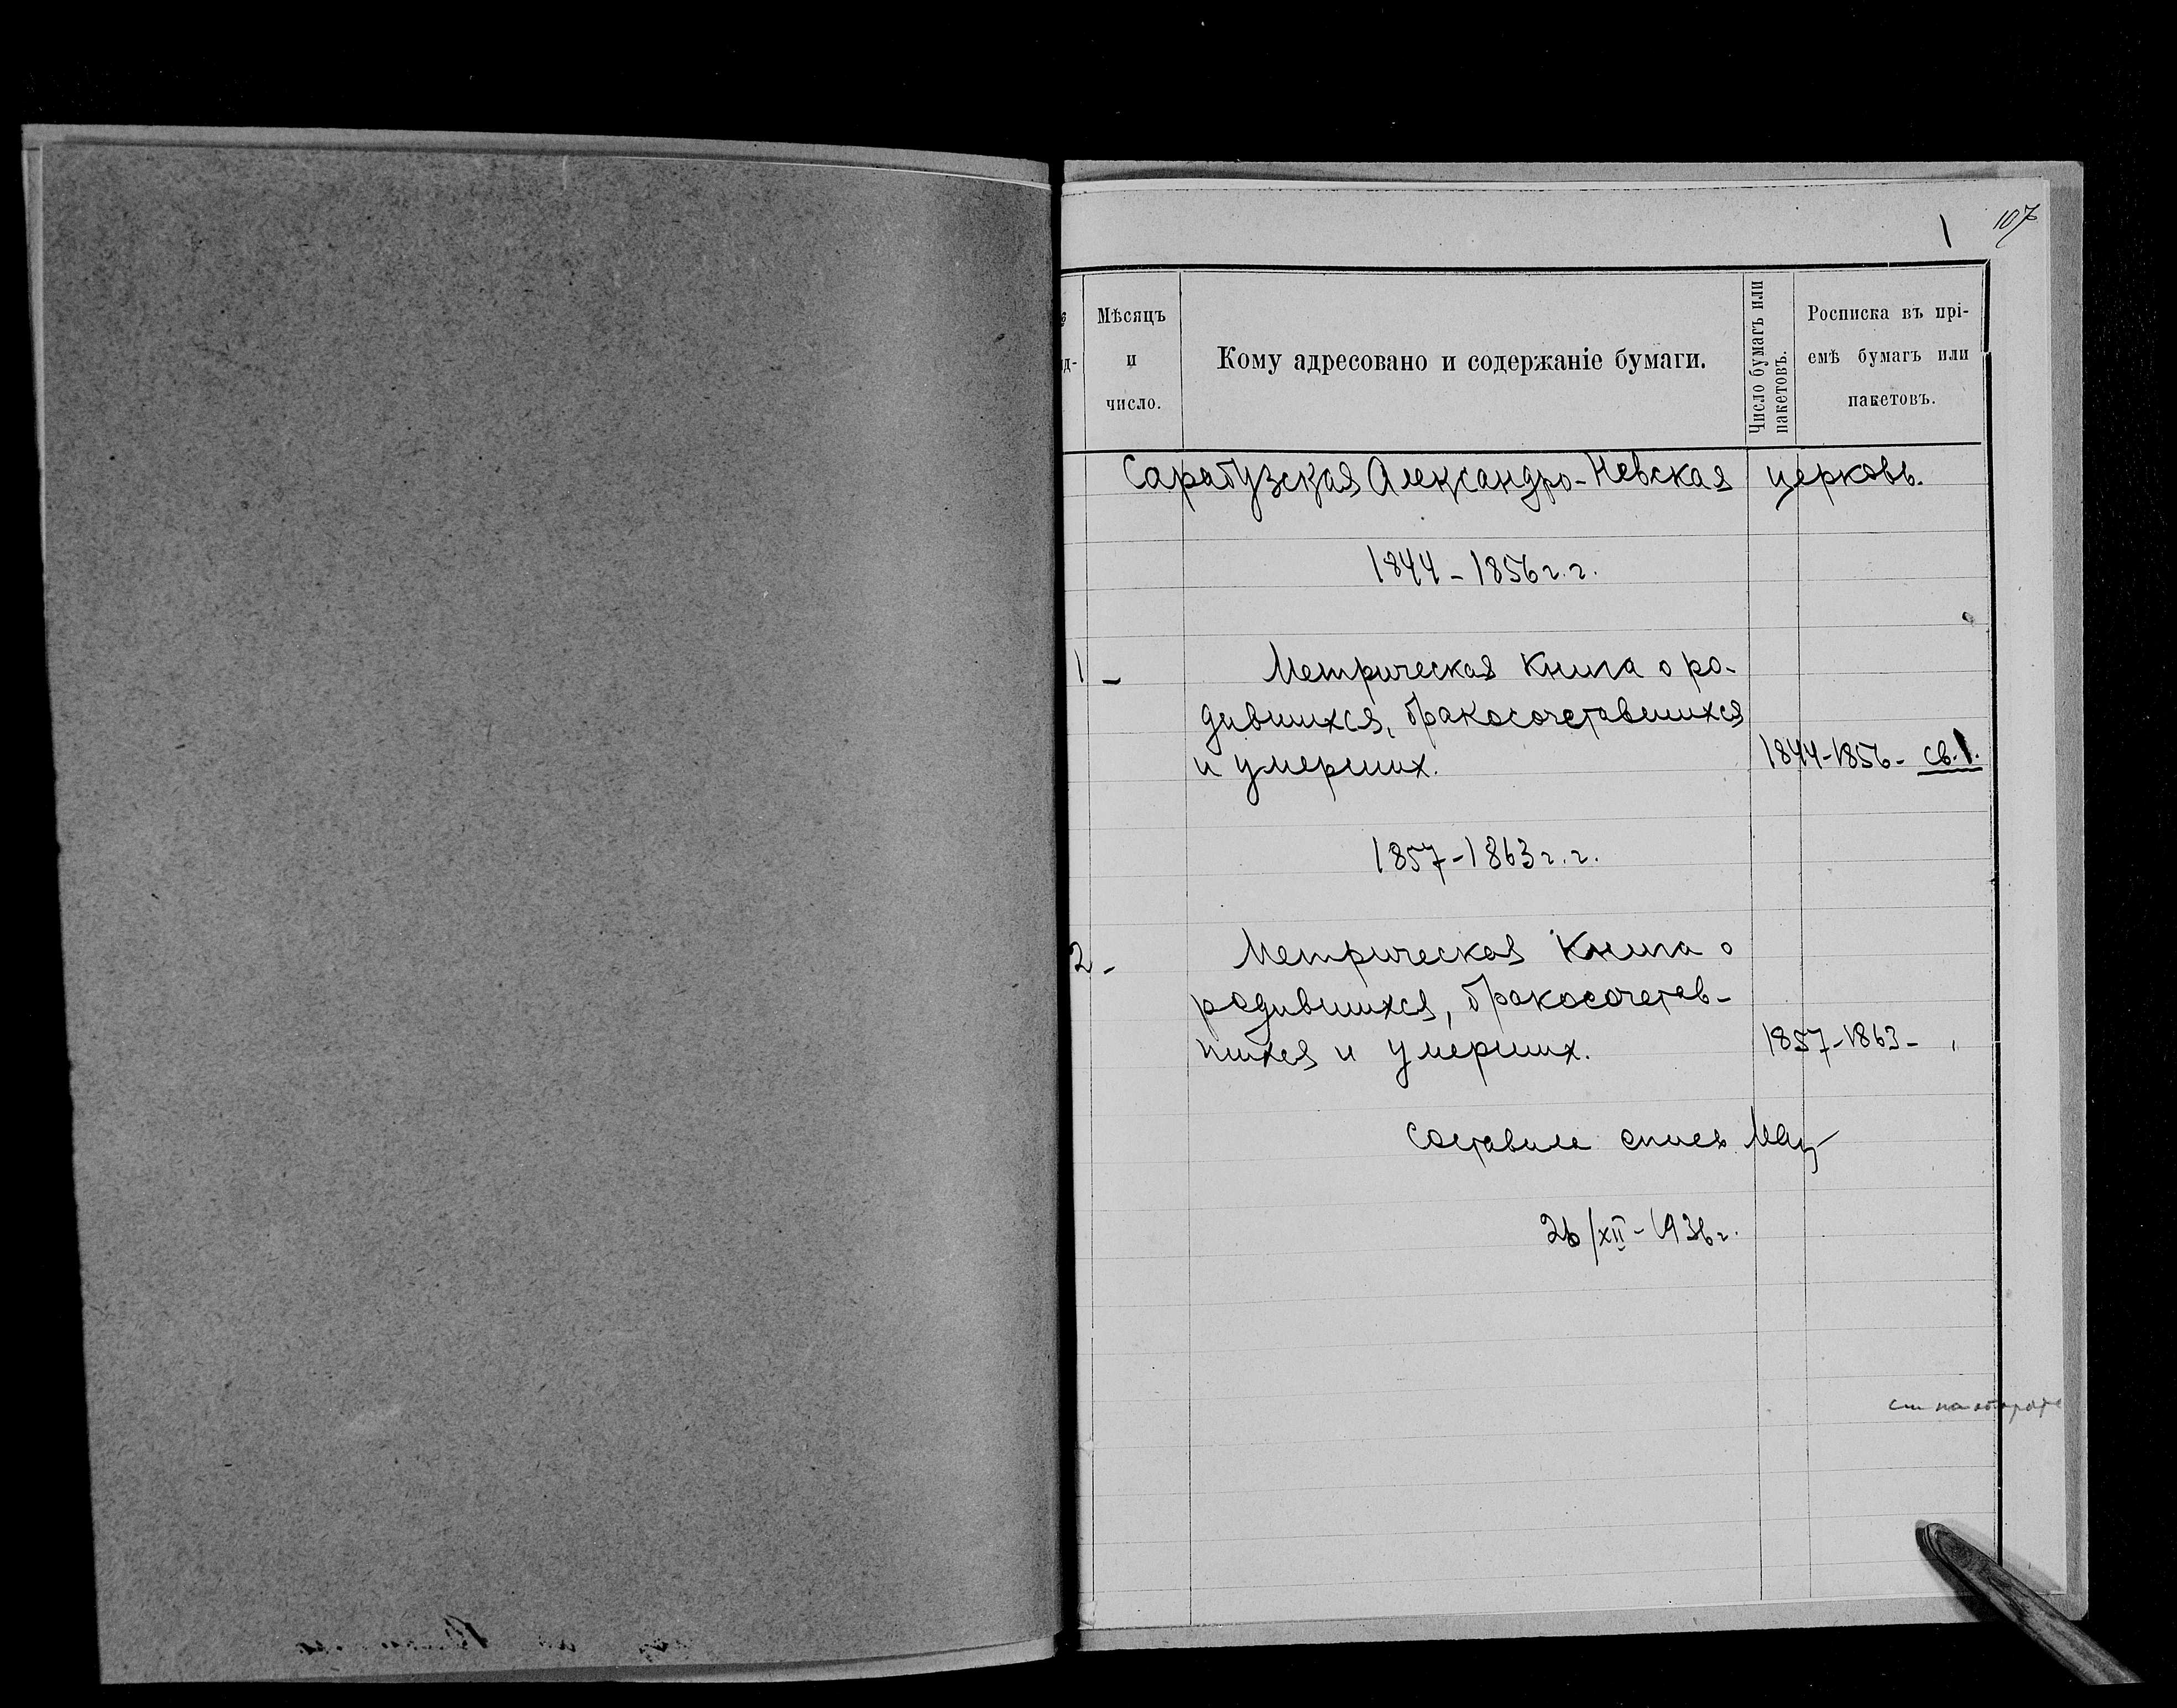 1 107
Мѣсяцъ
и
число.
Кому адресовано и содержаніе бумаги.
Число бумагъ или
пакетовъ.
Росписка въ прі-
емѣ бумагъ или
пакетовъ.
Сарабузская Александро-Невская церковь.
1844-1856 г.г.
1 - Метрическая книга о ро-
дившихся, бракосочетавшихся
и умерших. 1844-1856- св.1.
1857-1863 г.г.
2 - Метрическая книга о
родившихся, бракосочетав-
шихся и умерших. 1857-1863-
Составила опись
26/XII-1936 г.
см на обороте